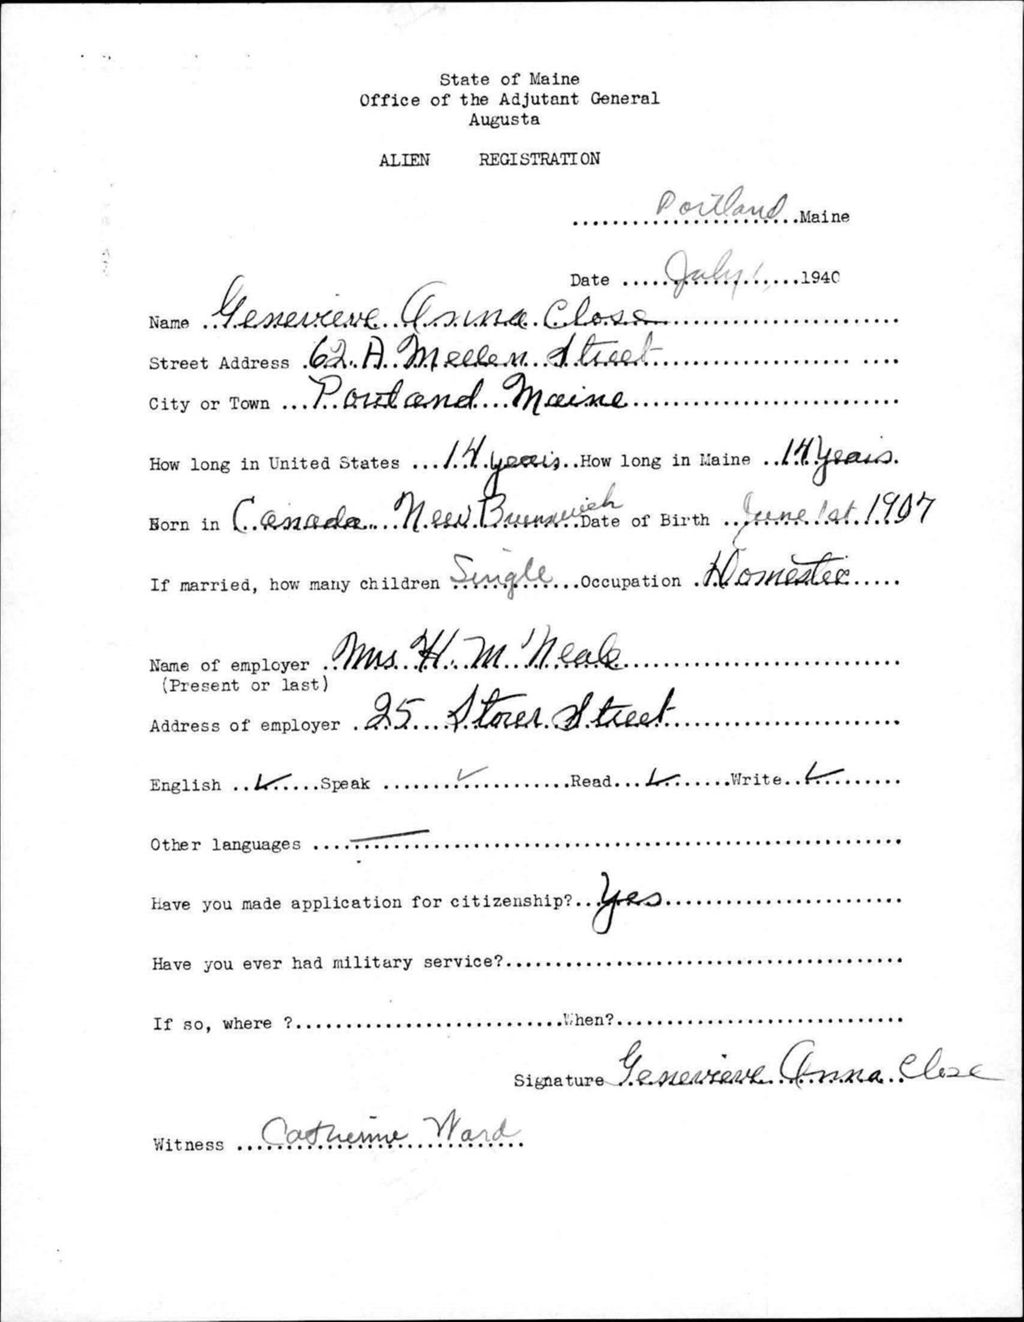 State of Maine
Office of the Adjutant General
Augusta
ALIEN REGISTRATION
Portland Maine
Date July 1, 1940
Name Genevieve Anna Close
Street Address 62 A Mellen Street
City or Town Portland Maine
How long in United States 14 years How long in Maine 14 years
Born in Canada New Brunswick Date of Birth June 1st 1907
If married, how many children Single Occupation Domestic
Name of employer Mrs. H. M. Neale
(Present or last)
Address of employer 25 Storer Street
English ✓ Speak ✓ Read ✓ Write ✓
Other languages —
Have you made application for citizenship? Yes
Have you ever had military service?
If so, where ? When?
Signature Genevieve Anna Close
Witness Catherine Ward